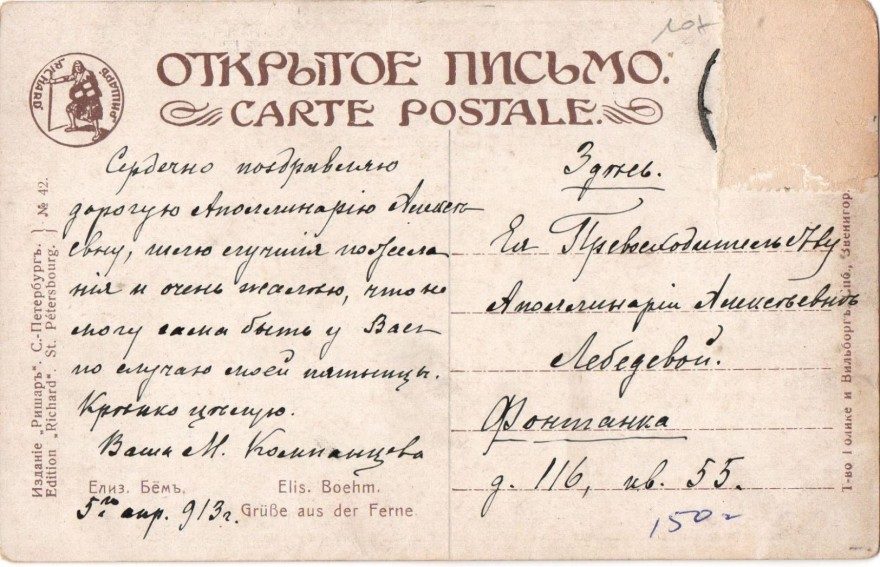 107
„RICHARD“
„РИШАРЪ“
ОТКРЫТОЕ ПИСЬМО.
CARTE POSTALE.
Изданіе „Ришаръ“. С.-Петербургъ.
Edition „Richard“. St. Pétersbourg.
№ 42.
Сердечно поздравляю
дорогую Аполлинарію Алексѣ
евну, шлю лучшія пожела
нія и очень жалѣю, что не
могу сама быть у Васъ
по случаю моей пятницы.
Крѣпко цѣлую.
Ваша М. Компанцева
Елиз. Бёмъ.
Elis. Boehm.
5го апр. 913 г.
Grüße aus der Ferne.
Здѣсь.
Ея Превосходительству
Аполлинаріи Алексѣевнѣ
Лебедевой.
Фонтанка
д. 116, кв. 55.
150-
Т-во Голике и Вильборгъ. Спб., Звенигор.